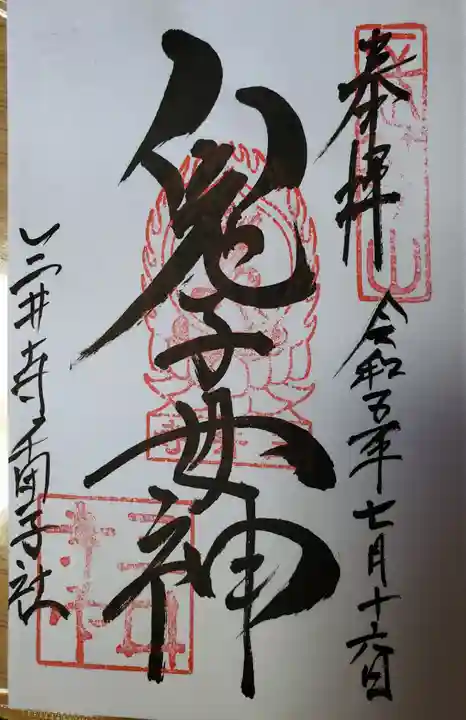 奉拝
令和五年七月十六日
鬼子母神
三井寺千団子社